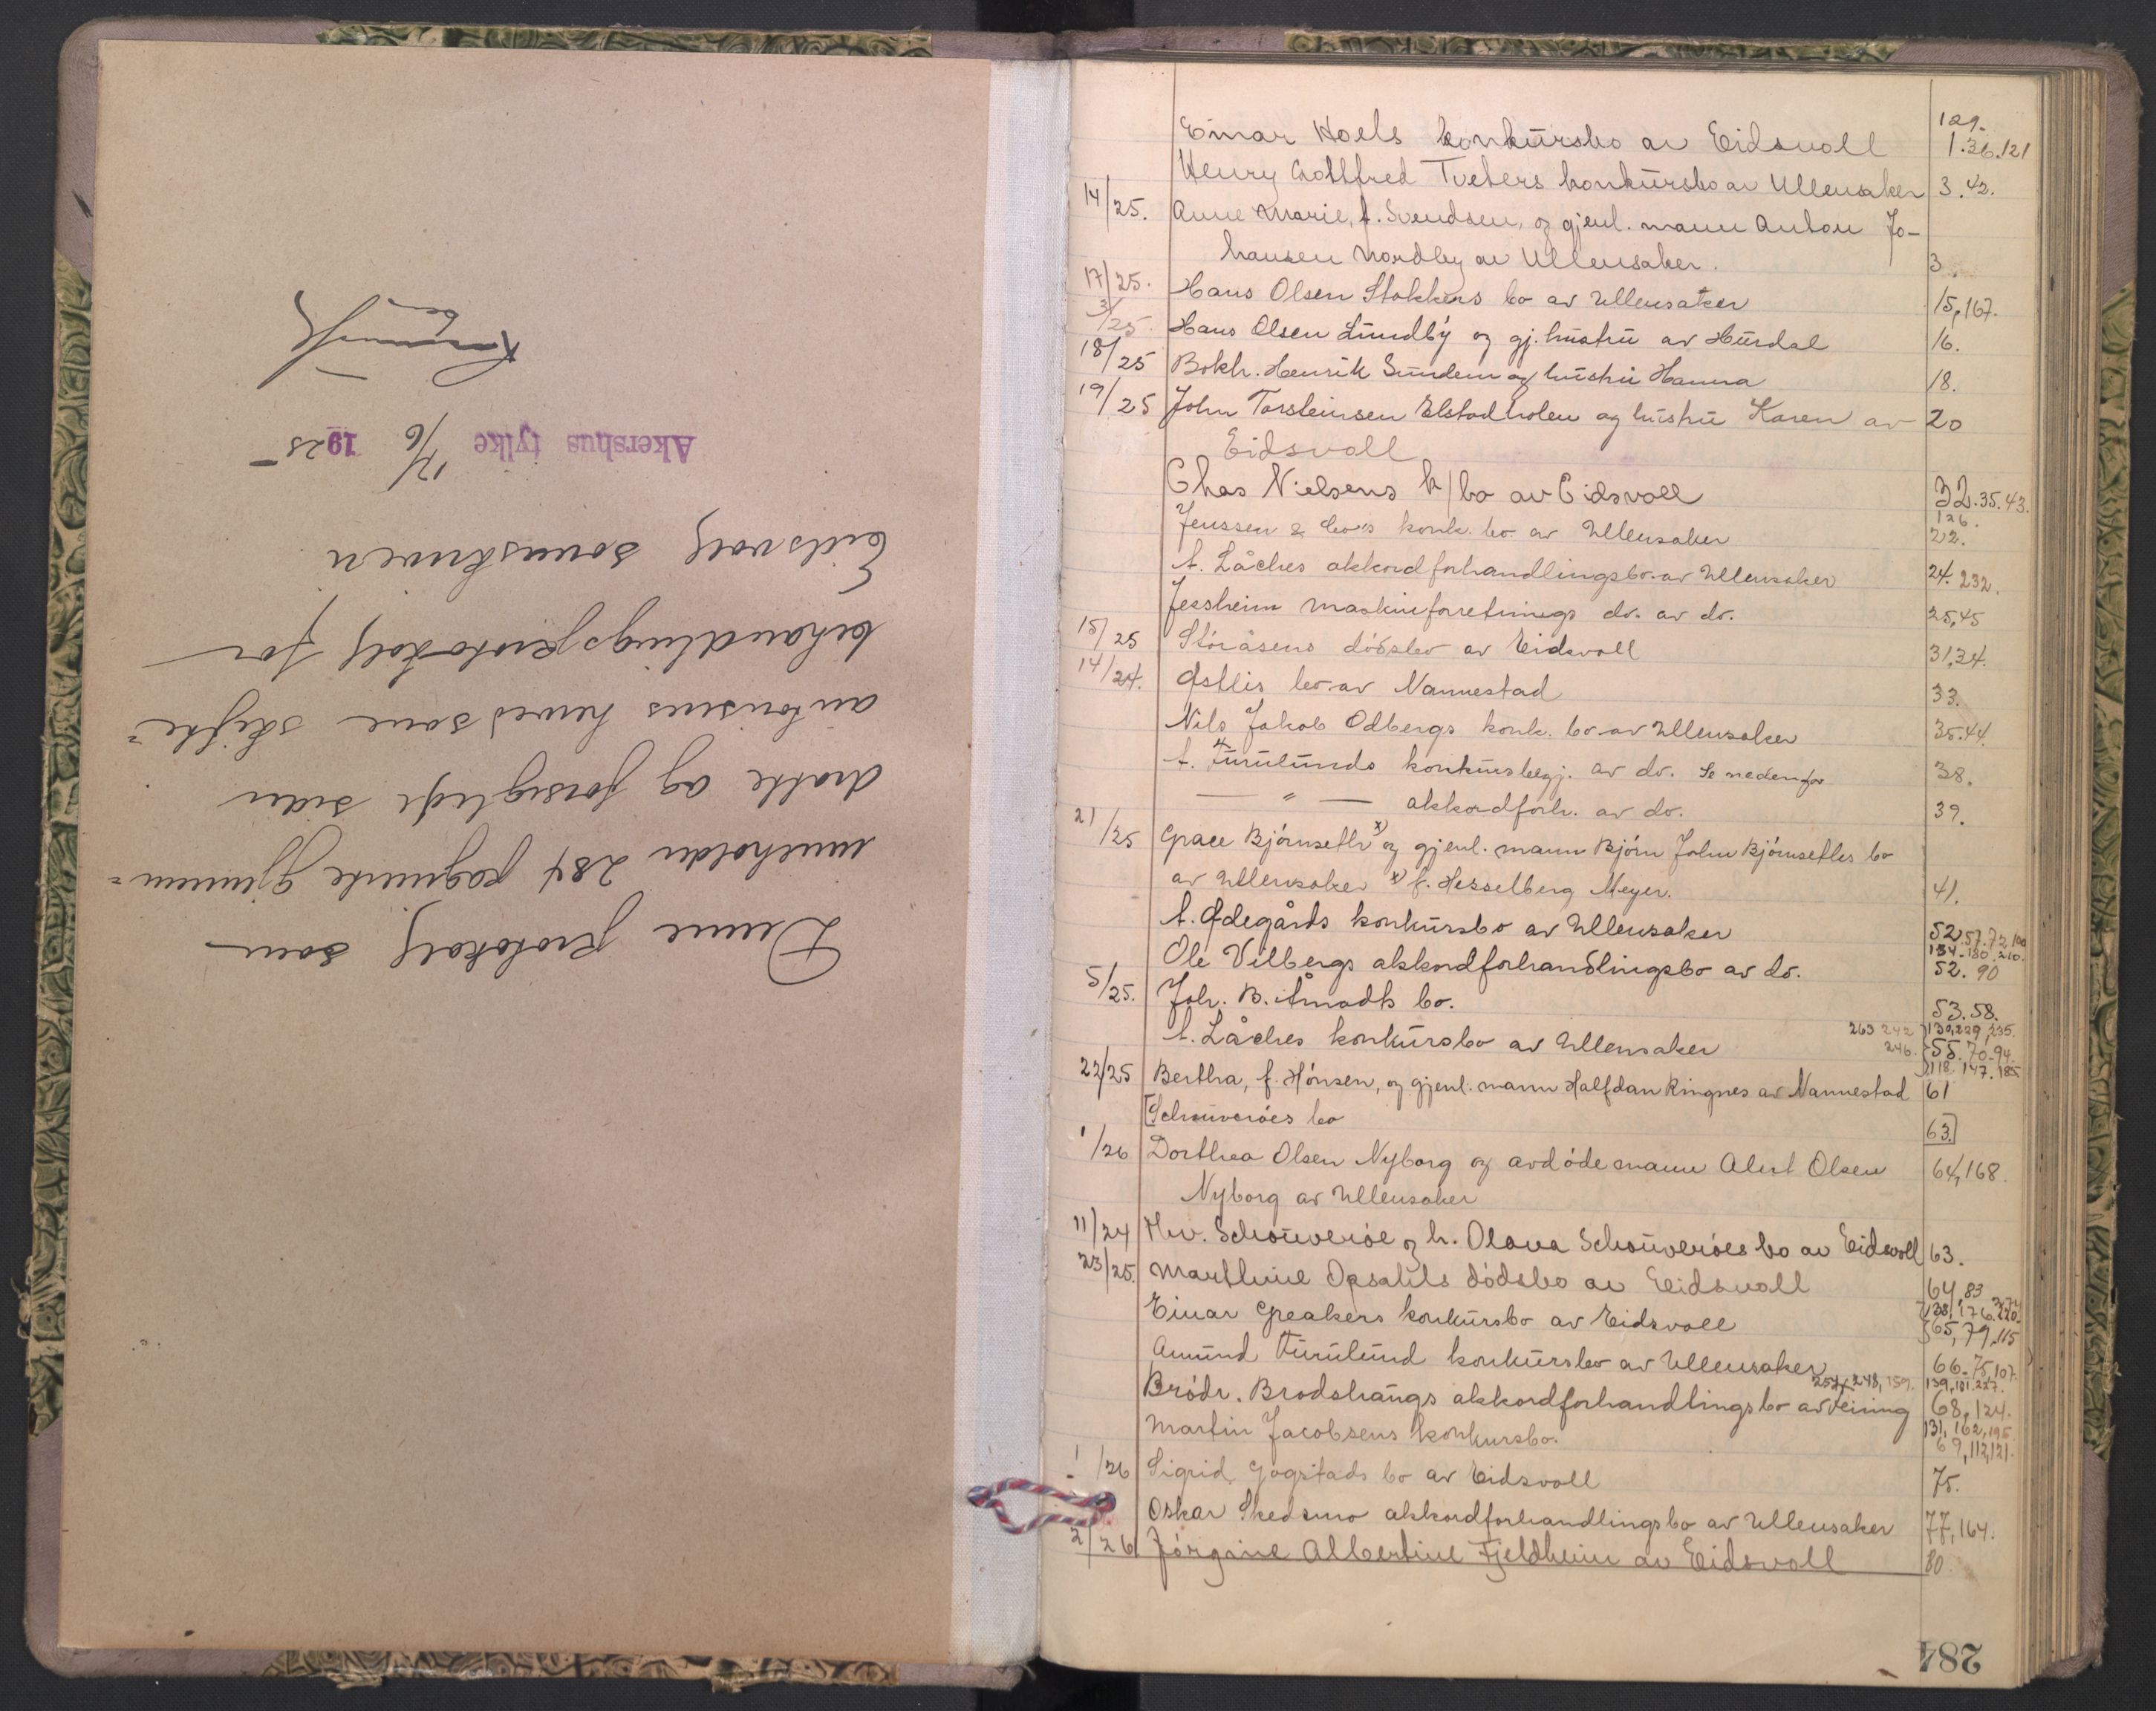 Denne protokoll som
inneholder 284 paginerte gjennem=
dratte og forseglede sider
autoriseres herved som skifte=
behandlingsprotokoll for
Eidsvoll sorenskriveri
Akershus fylke 17/6 1925

129.
Einar Hoels konkursbo av Eidsvoll 1.36.121
Henry Gottfred Tveters konkursbo av Ullensaker 3.42.
14/25. Anne Marie, f. Svendsen, og gjenl. mann Anton Jo-
hansen Nordby av Ullensaker. 3.
17/25. Hans Olsen Stokkens bo av Ullensaker 15,167.
3/25. Hans Olsen Lundby og gj. hustru av Hurdal 16.
18/25 Bokh. Henrik Sundem og hustru Hanna 18.
19/25 John Torsteinsen Elstadholen og hustru Karen av 20
Eidsvoll
Chas Nielsens k/bo av Eidsvoll 32.35.43.
126.
Jenssen & Co's konk. bo av Ullensaker 22.
A. Låches akkordforhandlingsbo av Ullensaker 24. 232.
Jessheim maskinforretnings do. av do. 25,45
15/25 Storåsens dødsbo av Eidsvoll 31,34.
14/24. Østlis bo av Nannestad 33.
Nils Jakob Odbergs konk. bo av Ullensaker 35.44.
A. Furulunds konkursbegj. av do. Se nedenfor 38.
— " — akkordforh. av do. 39.
21/25 Grace Bjørnseth x) og gjenl. mann Bjørn John Bjørnseths bo
av Ullensaker x) f. Hesselberg Meyer. 41.
A. Ødegårds konkursbo av Ullensaker 52.57.72.100
134.180.210.
Ole Vilbergs akkordforhandlingsbo av do. 52. 90
5/25. Joh. B. Åmodts bo. 53.58.
A. Låches konkursbo av Ullensaker 263 242 130,229,235.
246. 55.70.94.
118.147.185
22/25 Bertha, f. Hønsen, og gjenl. mann Halfdan Ringnes av Nannestad 61
[Schouverøes bo 63.]
1/26 Dorthea Olsen Nyborg og avdøde mann Alert Olsen 64,168.
Nyborg av Ullensaker
11/24 Hv. Schouverøe og h. Olava Schouverøes bo av Eidsvoll 63.
23/25. Marthine Opsahls dødsbo av Eidsvoll 64,83
138,176.220.
Einar Greakers konkursbo av Eidsvoll 65,79,115
Amund Furulund konkursbo av Ullensaker 66.75,107.
254, 248, 159. 139,181.227.
Brødr. Brodshaugs akkordforhandlingsbo av Feiring 68,124.
131,162,195
Martin Jacobsens konkursbo. 69,112,121.
1/26 Sigrid Gogstads bo av Eidsvoll 75.
Oskar Skedsmo akkordforhandlingsbo av Ullensaker 77,164.
2/26 Jørgine Albertine Fjeldheim av Eidsvoll 80.
284